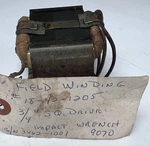 FIELD WINDING
# 18-75-1205
3/4 SQ. DRIVE
IMPACT WRENCH
9070